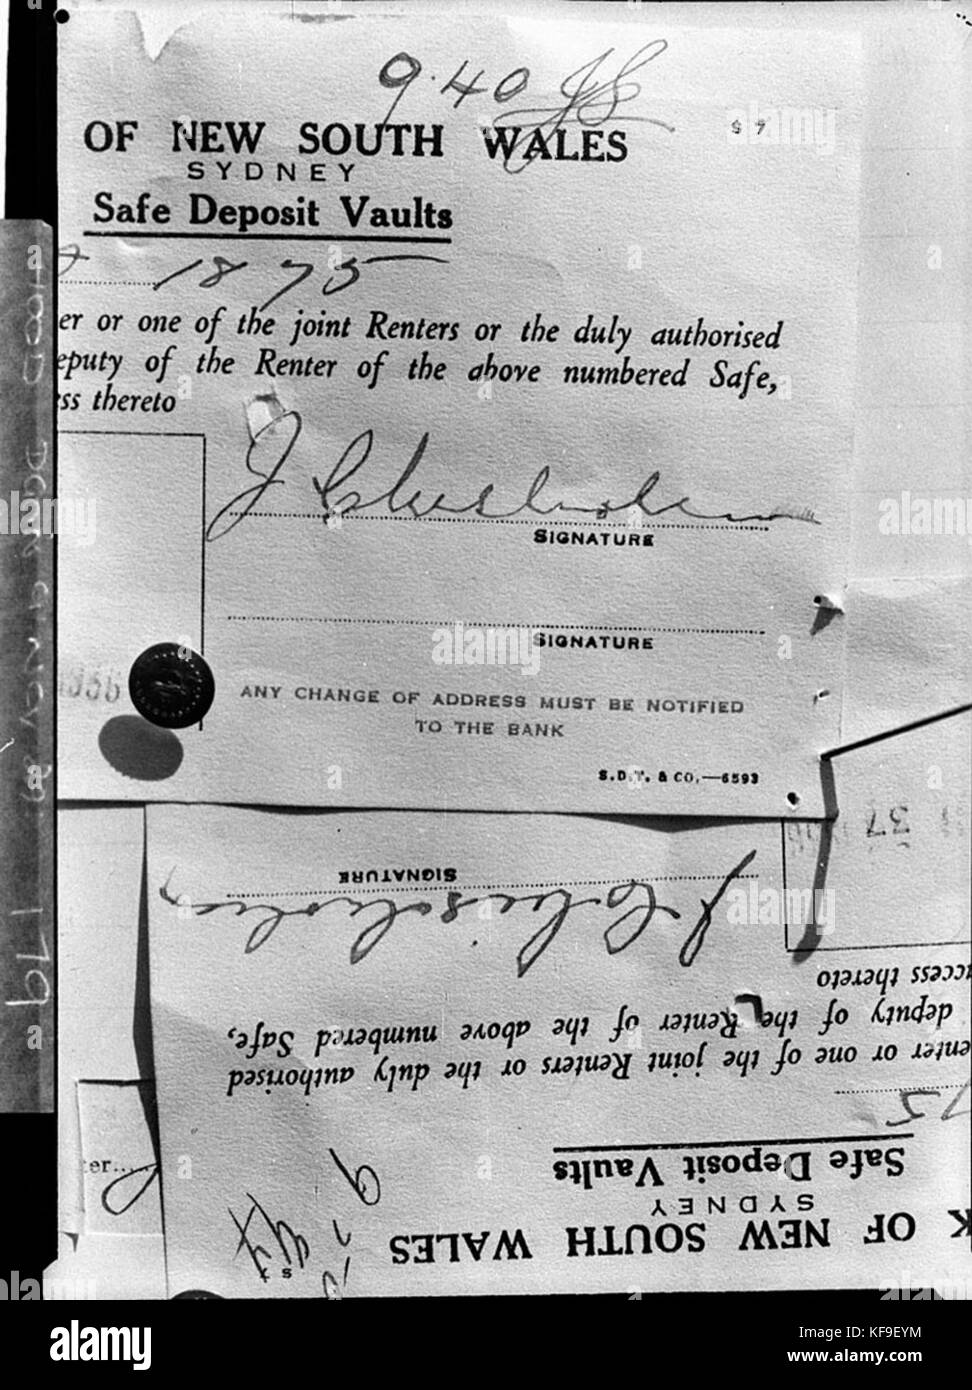 9.40 JC
OF NEW SOUTH WALES
S 7
SYDNEY
Safe Deposit Vaults
1875
er or one of the joint Renters or the duly authorised
eputy of the Renter of the above numbered Safe,
ss thereto
J Chisholm
SIGNATURE
SIGNATURE
ANY CHANGE OF ADDRESS MUST BE NOTIFIED
TO THE BANK
S.D.T. & CO.—6593
37
SIGNATURE
J Chisholm
ccess thereto
deputy of the Renter of the above numbered Safe,
enter or one of the joint Renters or the duly authorised
75
Safe Deposit Vaults
SYDNEY
K OF NEW SOUTH WALES
ter...
179
alamy
Image ID: KF9EYM
www.alamy.com